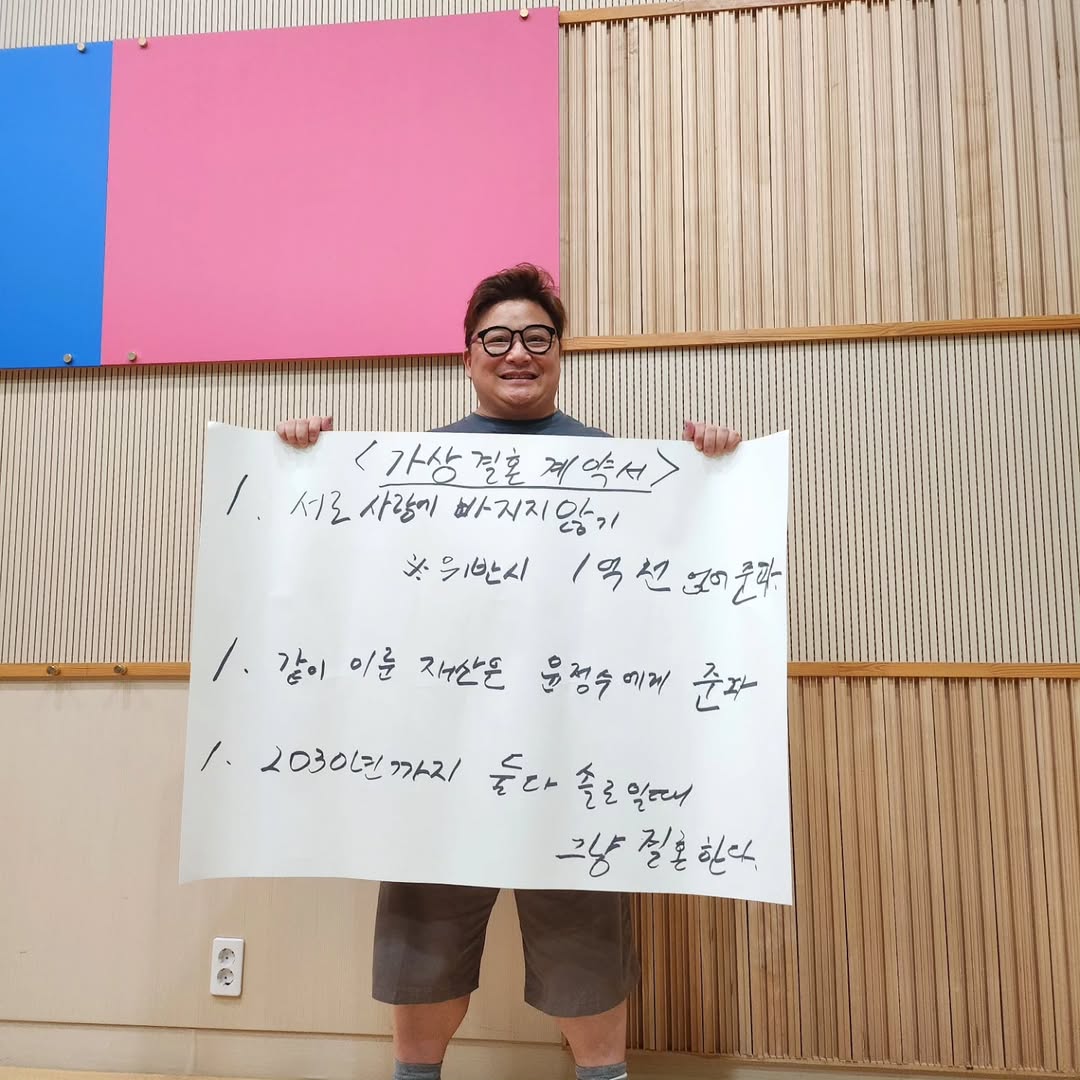 <가상결혼 계약서>
1. 서로 사랑에 빠지지 않기
※위반시 1억 선 없어준다.
1. 같이 이룬 재산은 윤정수에게 준다
1. 2030년까지 둘다 솔로일때
그냥 결혼한다.